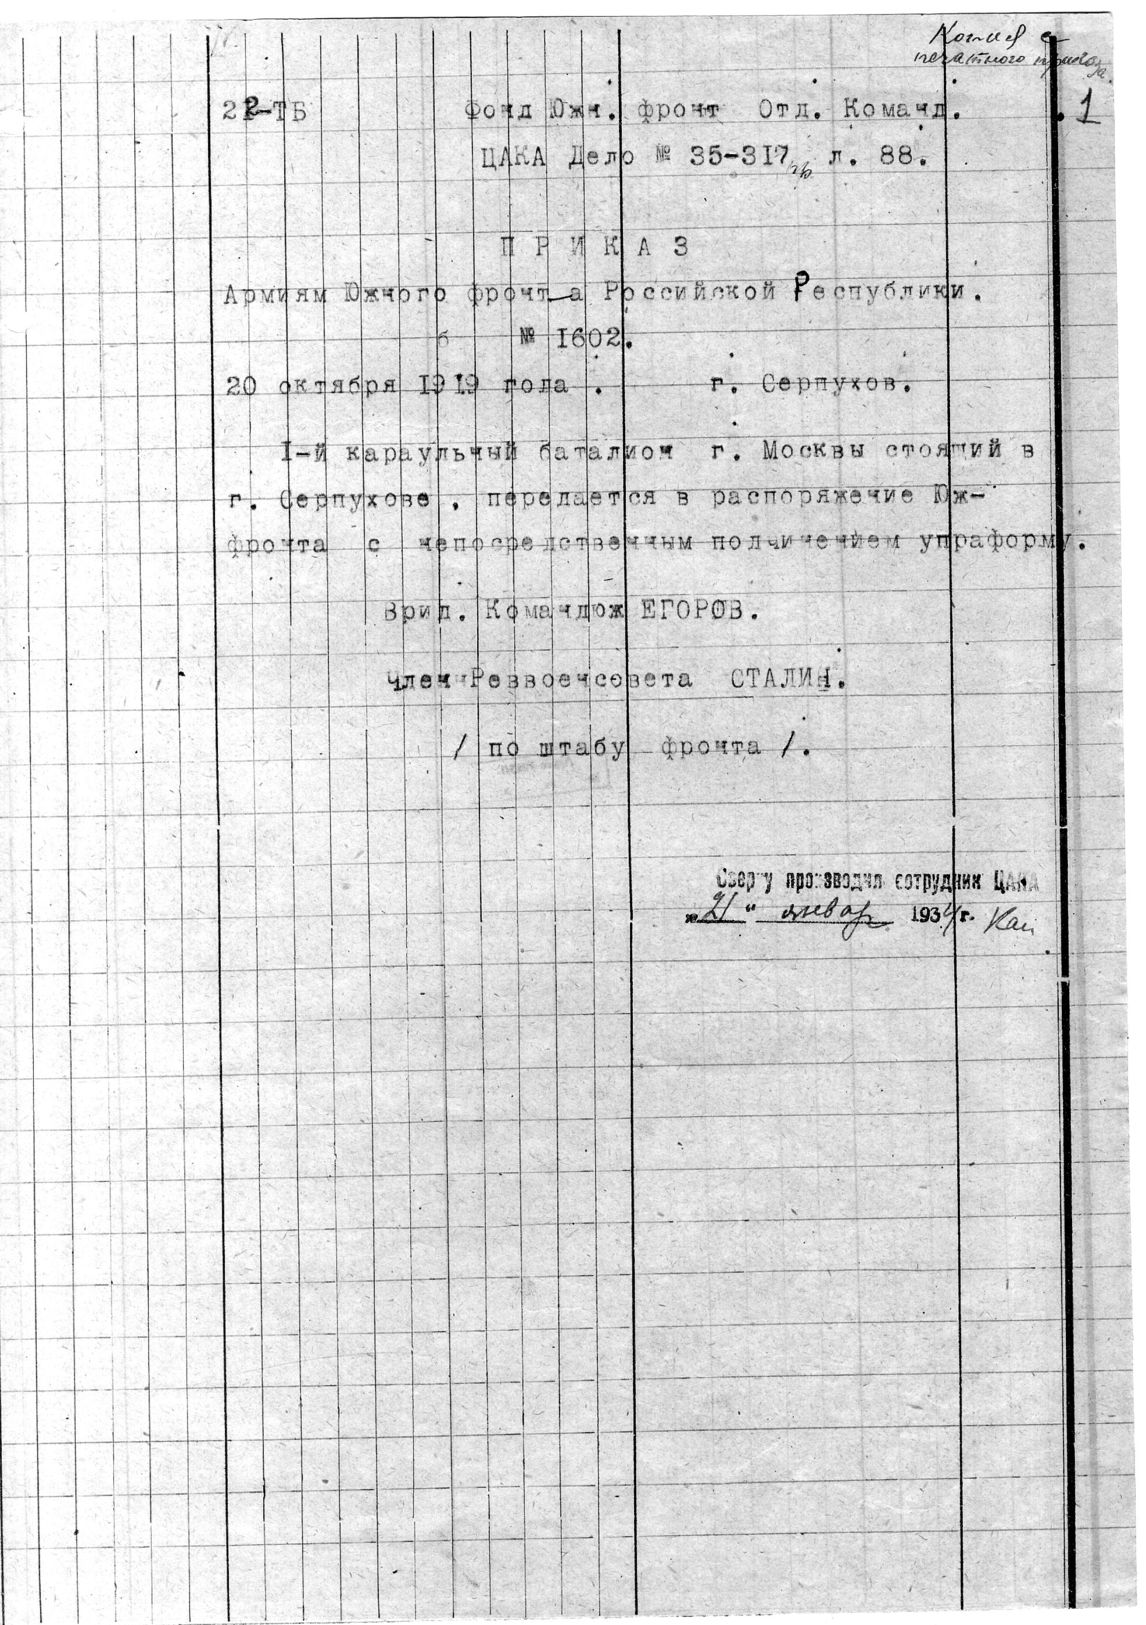 Копия с
печатного приказа.
22-ТБ Фонд Южн. фронт Отд. Команд. 1
ЦАКА Дело № 35-317 л. 88.
П Р И К А З
Армиям Южного фронта Российской Республики.
№ 1602.
20 октября 1919 года . г. Серпухов.
1-й караульный баталион г. Москвы стоящий в
г. Серпухове , передается в распоряжение Юж-
фронта с непосредственным подчинением упраформу.
Врид. Командюж ЕГОРОВ.
Член Реввоенсовета СТАЛИН.
/ по штабу фронта /.
Сверку производил сотрудник ЦАКА
„21" январ 1934 г.